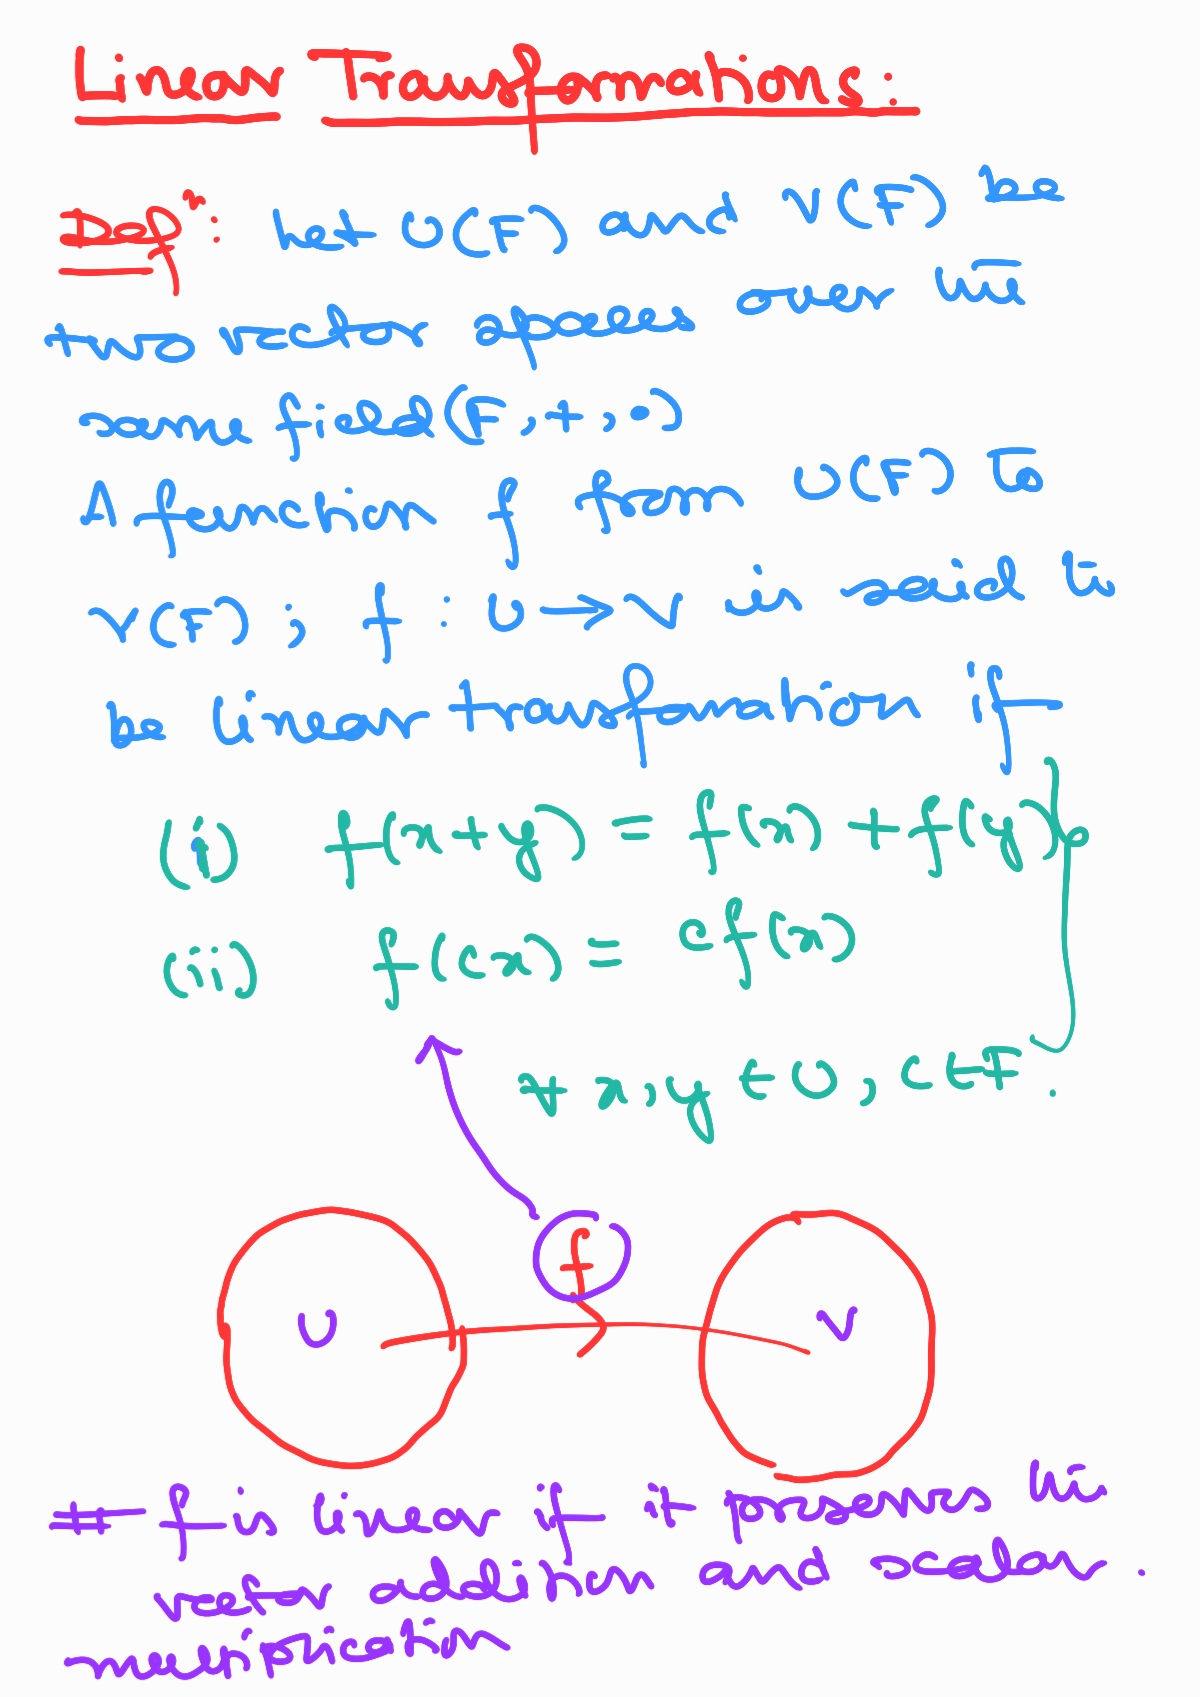 Linear Transformations:
Defⁿ: Let U(F) and V(F) be
two vector spaces over the
same field (F, +, •)
A function f from U(F) to
V(F); f : U → V is said to
be linear transformation if
(i) f(x+y) = f(x) + f(y)
(ii) f(cx) = cf(x)
∀ x, y ∈ U, c ∈ F.
f
U V
# f is linear if it preserves the
vector addition and scalar
multiplication